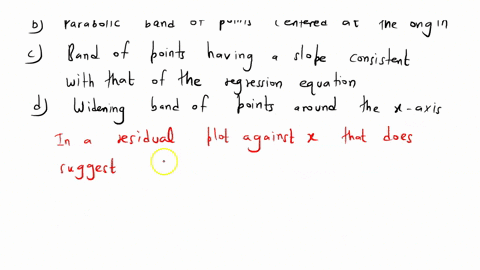 b) Parabolic band of points centered at the origin
c) Band of points having a slope consistent
with that of the regression equation
d) Widening band of points around the x-axis
In a residual plot against x that does
suggest